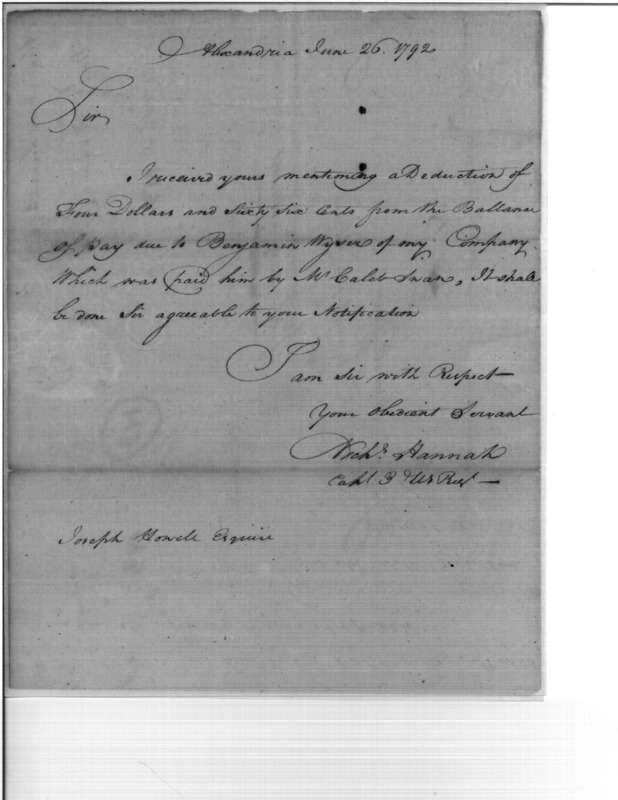 Alexandria June 26. 1792
Sir
I received yours mentioning a Deduction of
Four Dollars and Sixty Six Cents from the Ballance
of pay due to Benjamin Wyser of my Company.
Which was paid him by Mr Caleb Swan, It shall
be done Sir agreable to your Notification
I am Sir with Respect
Your Obedient Servant
Nichs Hannah
Capt 3d US Regt
Joseph Howell Esquire